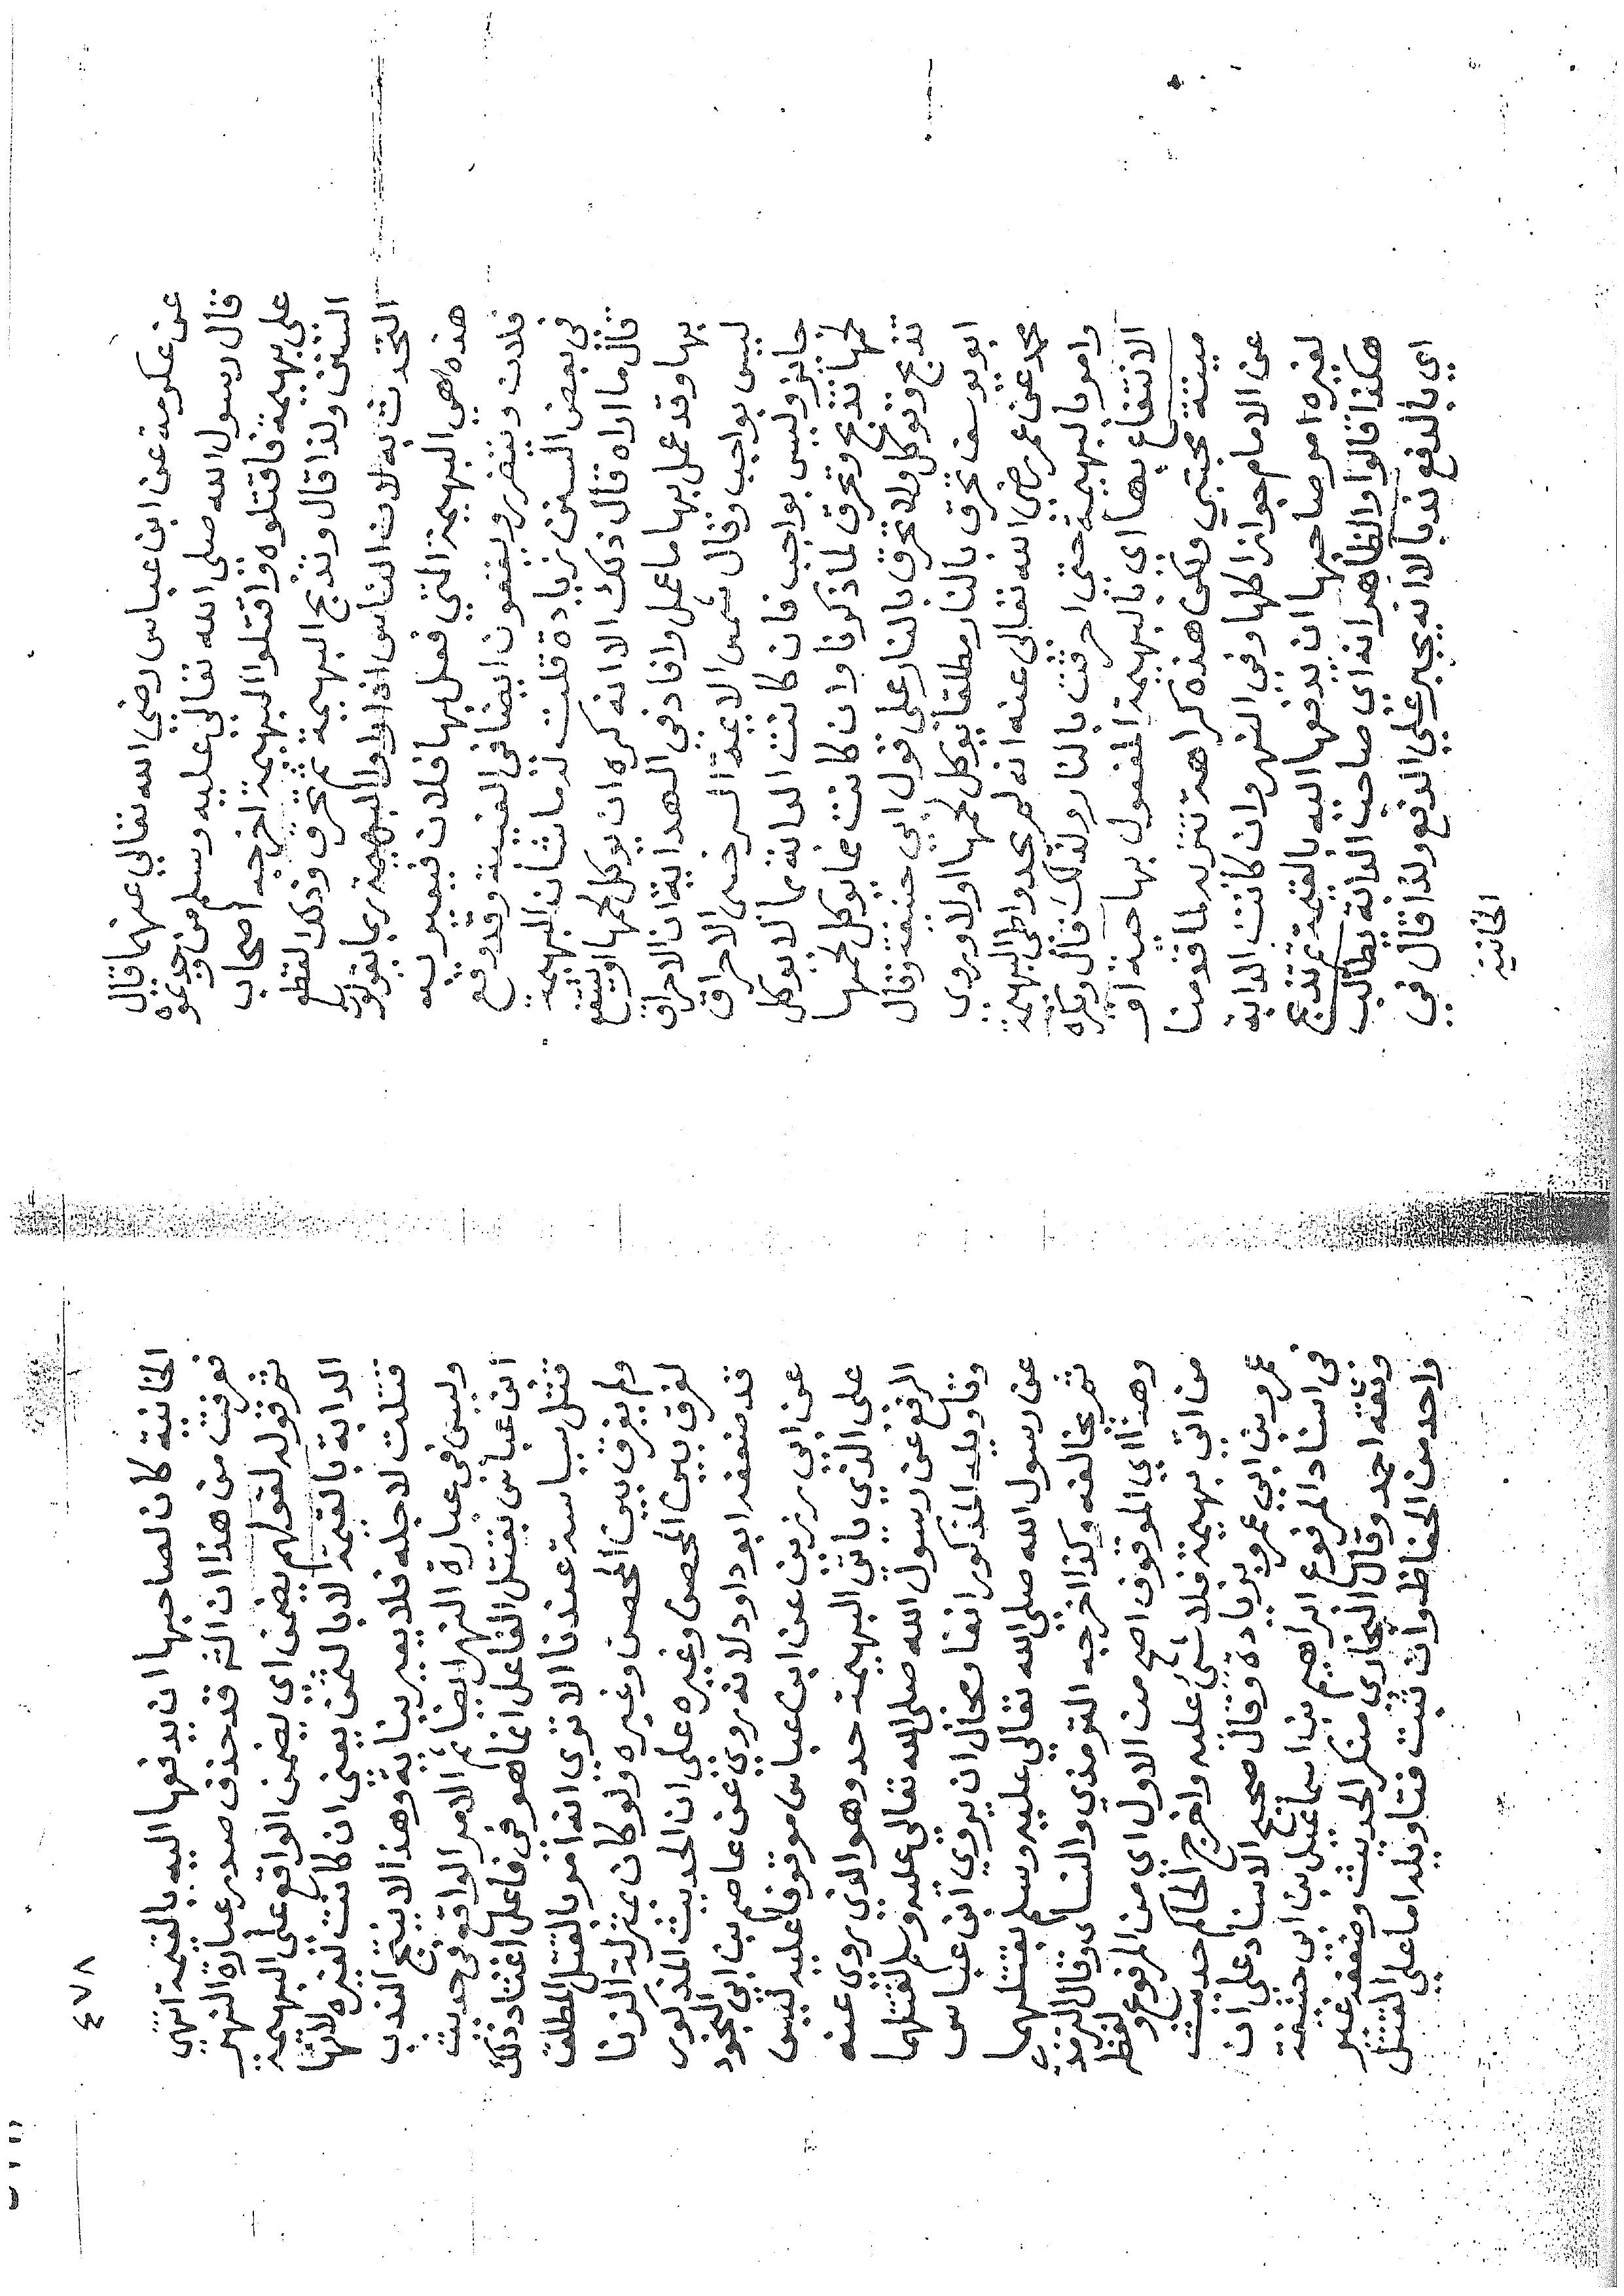 عن عكرمة عن ابن عباس رضي الله تعالي عنهما قال
قال رسول الله صلى الله تعالي عليه وسلم من وجدتموه
على بهيمة فاقتلوه واقتلوا البهيمة اخرجه اصحاب
السنن ولذا قال وتذبح البهيمة ثم تحرق وذكر لقطع
التحدث به لان الناس اذا راوا البهيمة ربما يقولون
هذه هي البهيمة التي فعل بها فلان فيعيرون به
فلان ويتضرر ويقعون ايضا في الغيبة وقد وقع
في بعض السنن زيادة قلت له ما شأن البهيمة
قال ما اراه قال ذلك الا انه كره ان يوكل لحمها او ينتفع
بها وقد عمل بها ما عمل وافاد في الهداية ان الاحراق
ليس بواجب وقال شمس الايمة السرخسي الاحراق
جايز وليس بواجب فان كانت الدابة مما لا يوكل
لحمها تذبح وتحرق لما ذكرنا وان كانت مما يوكل لحمها
تذبح وتوكل ولا تحرق بالنار على قول ابي حنيفة وقال
ابو يوسف تحرق بالنار مطلقا يوكل لحمها اولا وروى
محمد عن عمر رضي الله تعالى عنه انه لم يحد واطئ البهيمة
وامر بالبهيمة حتى احرقت بالنار ولذلك قال ويكره
الانتفاع بها اي بالبهيمة المفعول بها حية او
ميتة مجتبي ولكن هذه كراهة تنزيه لما قدمنا
عن الامام جواز اكلها وفي النهر وان كانت الدابة
لغيره امر صاحبها ان يدفعها اليه بالقيمة ثم تذبح
هكذا قالوا والظاهر انه اي صاحب الدابة يطالب
اي بالدفع ندبا لا انه يجبر على الدفع ولذا قال في
الخانية
٤٧٨
الخانية كان لصاحبها ان يدفعها اليه بالقيمة انتهى
فعرفت من هذا ان المتن قد حذف صدر عبارة النهر
ثم قوله لقولهم يضمن اي يضمن الواقع على البهيمة
الدابة بالقيمة لا بالثمن يعني ان كانت لغيره لانها
قتلت لاجله فلا يعير بنايه وهذا لا ينتج الندب
وليس في عبارة النهر ايضا ثم الامر الواقع في حديث
ابن عباس بقتل الفاعل انما هو في فاعل اعتاد ذلك
قتل سياسة عندنا الا ترى انه امر بالقتل المطلق
ولم يفرق بين المحصن وغيره ولو كان بمنزلة الزنا
لفرق بين المحصن وغيره على ان الحديث المذكور
قد ضعفه ابو داود لانه روي عن عاصم بن ابي النجود
عن ابي رزين عن ابن عباس موقوفا عليه ليس
على الذي ياتي البهيمة حد وهو الذي روي عنه
الرفع عن رسول الله صلى الله تعالى عليه وسلم لقتلها
وتاويله المذكور انفا ومحال ان يروي ابن عباس
عن رسول الله صلى الله تعالي عليه وسلم بقتلهما
ثم يخالفه وكذا اخرجه الترمذي والنساي وقال الترمذي
وهذا اي الموقوف اصح من الاول اي من المرفوع ولفظه
من اتي بهيمة فلا شئ عليه واخرج الحاكم حديث
عمرو بن ابي عمرو بزيادة وقال صحيح الاسناد على ان
في اسناد المرفوع ابراهيم بن اسماعيل بن ابي حبيبة
وثقه احمد وقال البخاري منكر الحديث وضعفه غير
واحد من الحفاظ وان ثبت فتاويله اما على القتل